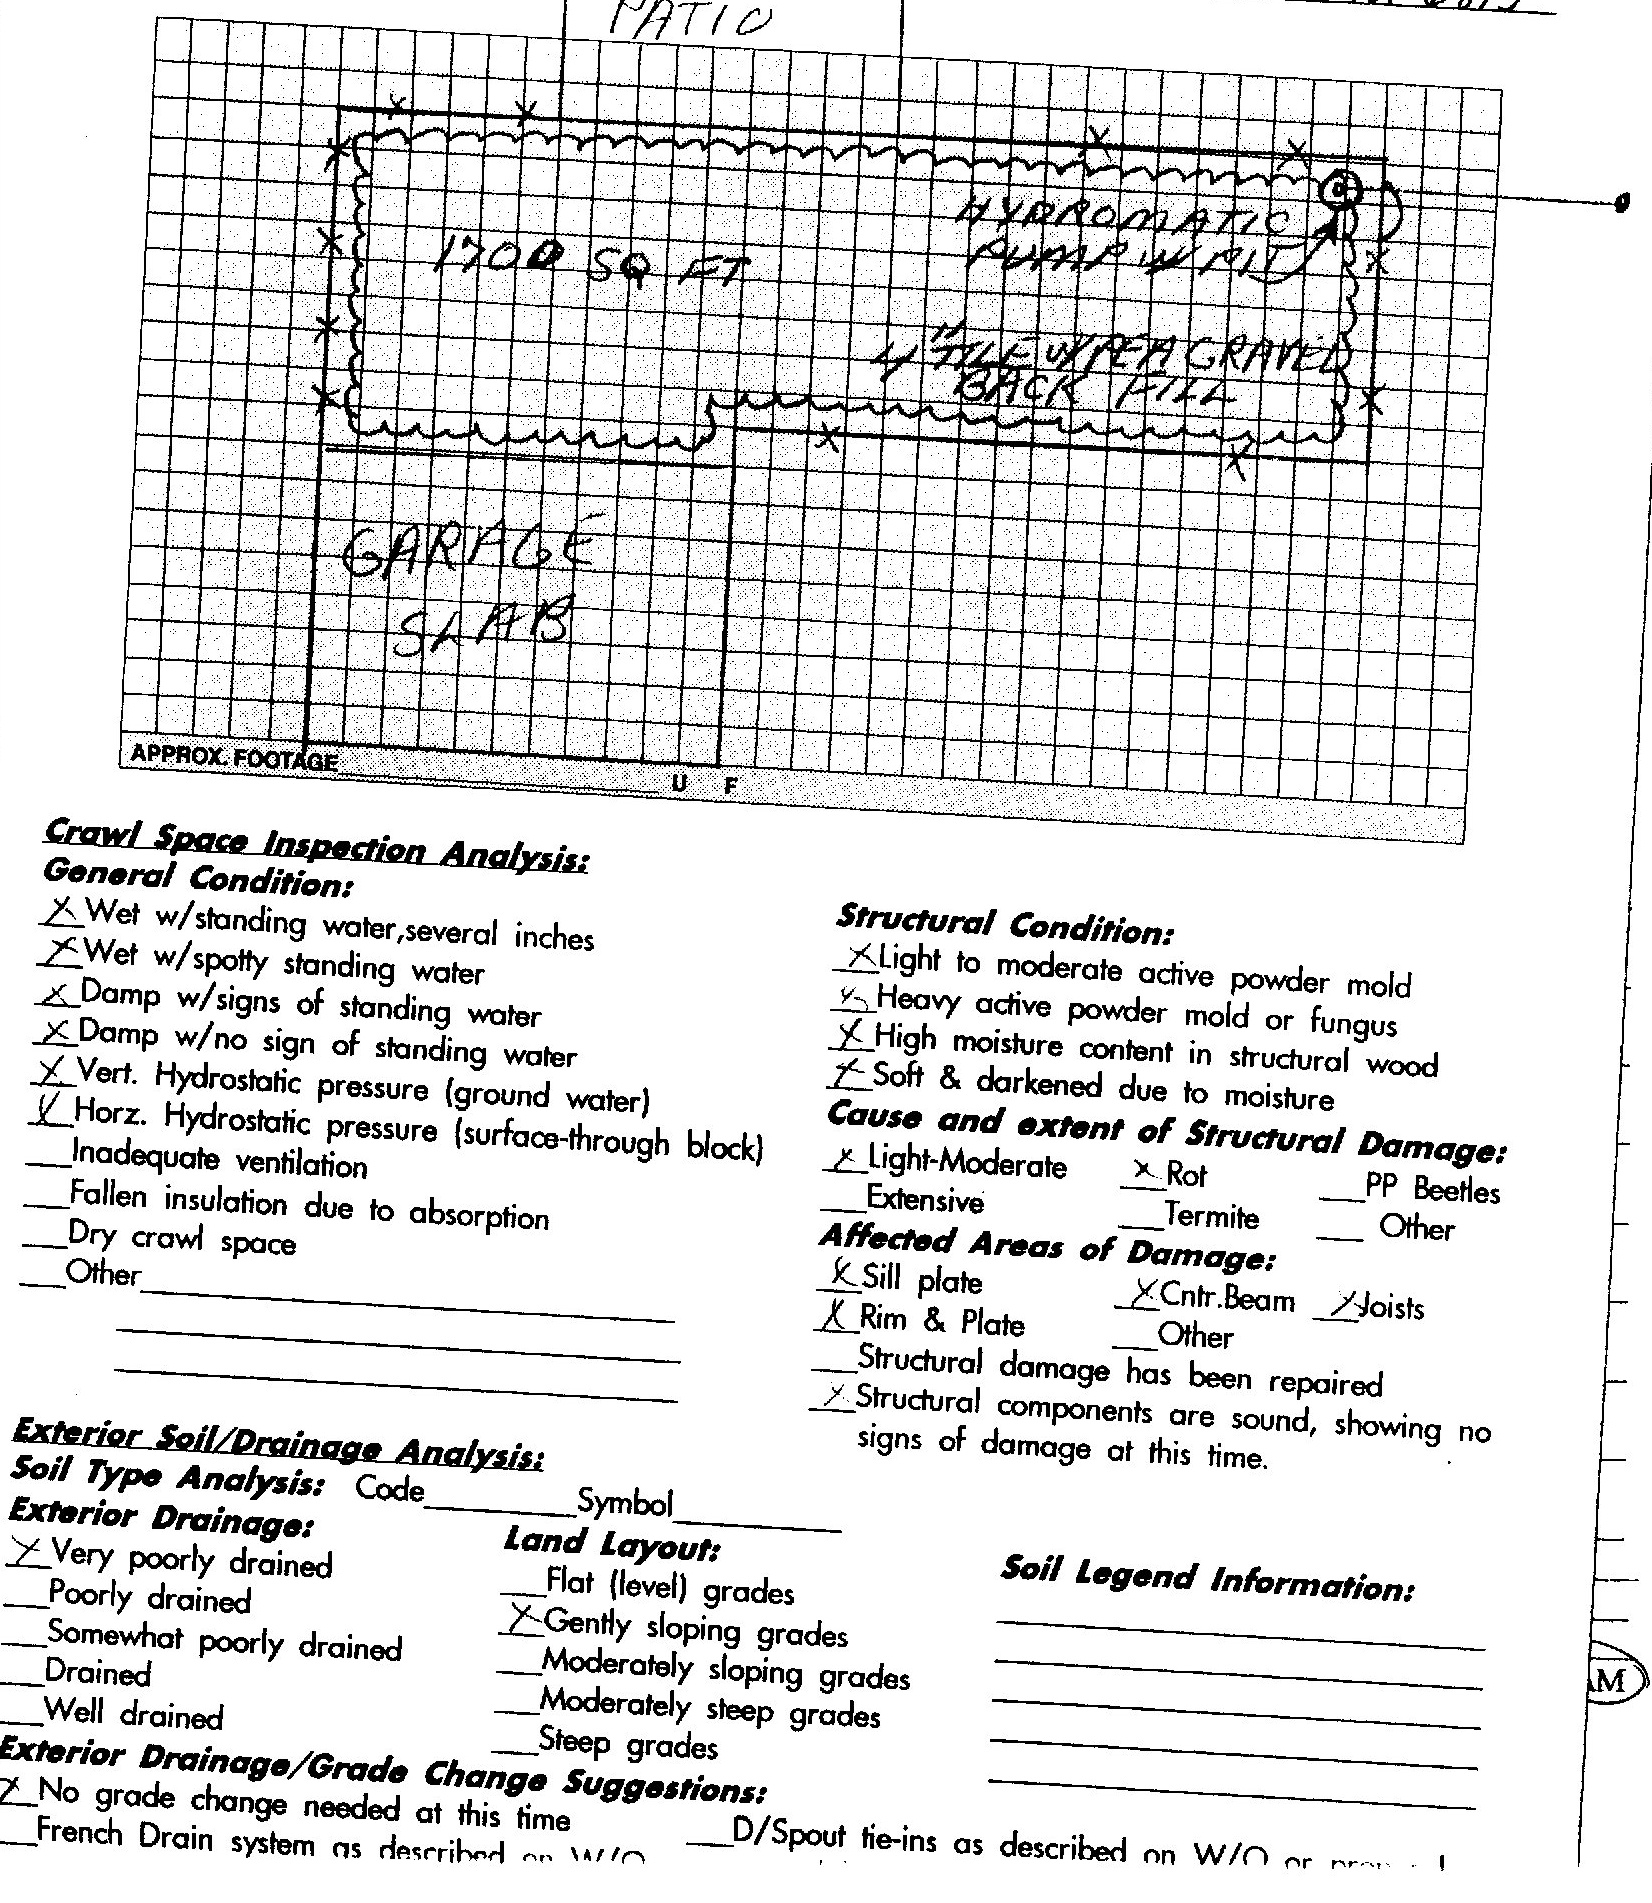 PATIO
1700 SQ FT
HYDROMATIC
PUMP W/ PIT
4" TILE W/ PEA GRAVEL
BACK FILL
GARAGE
SLAB
APPROX. FOOTAGE
U F
Crawl Space Inspection Analysis:
General Condition:
X Wet w/standing water,several inches
X Wet w/spotty standing water
X Damp w/signs of standing water
X Damp w/no sign of standing water
X Vert. Hydrostatic pressure (ground water)
X Horz. Hydrostatic pressure (surface-through block)
__Inadequate ventilation
__Fallen insulation due to absorption
__Dry crawl space
__Other
Structural Condition:
X Light to moderate active powder mold
X Heavy active powder mold or fungus
X High moisture content in structural wood
X Soft & darkened due to moisture
Cause and extent of Structural Damage:
X Light-Moderate X Rot __PP Beetles
__Extensive __Termite __ Other
Affected Areas of Damage:
X Sill plate X Cntr.Beam X Joists
X Rim & Plate __Other
__Structural damage has been repaired
X Structural components are sound, showing no
signs of damage at this time.
Exterior Soil/Drainage Analysis:
Soil Type Analysis: Code________Symbol________
Exterior Drainage:
X Very poorly drained
__Poorly drained
__Somewhat poorly drained
__Drained
__Well drained
Land Layout:
__Flat (level) grades
X Gently sloping grades
__Moderately sloping grades
__Moderately steep grades
__Steep grades
Soil Legend Information:
AM
Exterior Drainage/Grade Change Suggestions:
X No grade change needed at this time
__French Drain system as described on W/O
__D/Spout tie-ins as described on W/O or